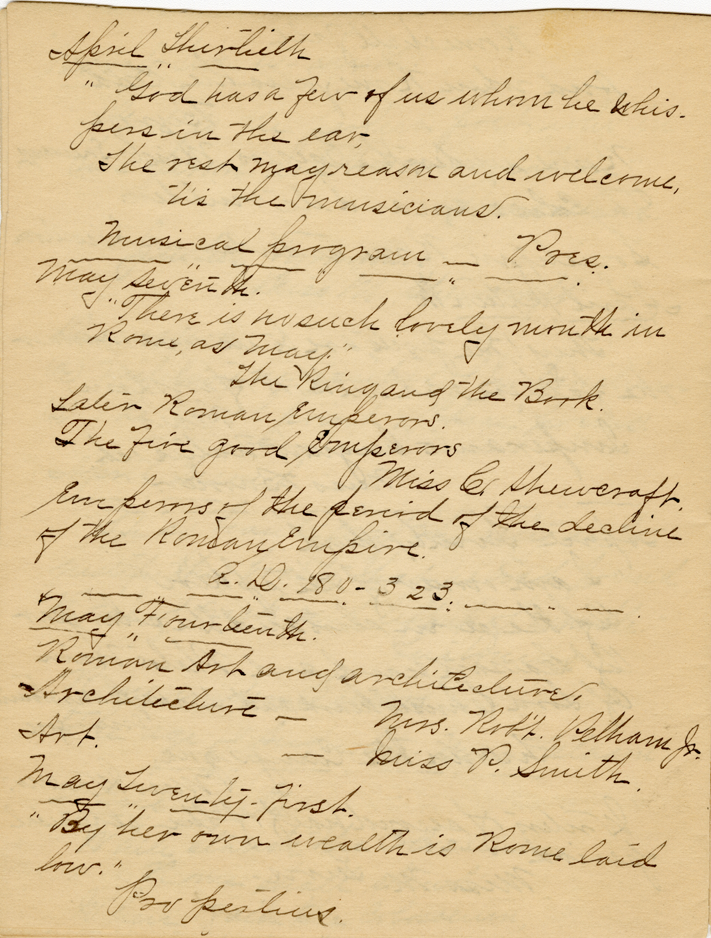 April Thirtieth
" God has a few of us whom he whis-
pers in the ear,
The rest may reason and welcome,
'tis the musicians.
Musical program — Pres.
May seventh.
"There is no such lovely month in
Rome, as May."
The Ring and the Book.
Later Roman Emperors.
The Five good Emperors
Miss C. Shewcraft.
Emperors of the period of the decline
of the Roman Empire.
A.D. 180 - 323.
May Fourteenth.
Roman Art and architecture.
Architecture — Mrs. Robt. Pelham Jr.
Art. — Miss P. Smith.
May Twenty-first.
"By her own wealth is Rome laid
low."
Propertius.